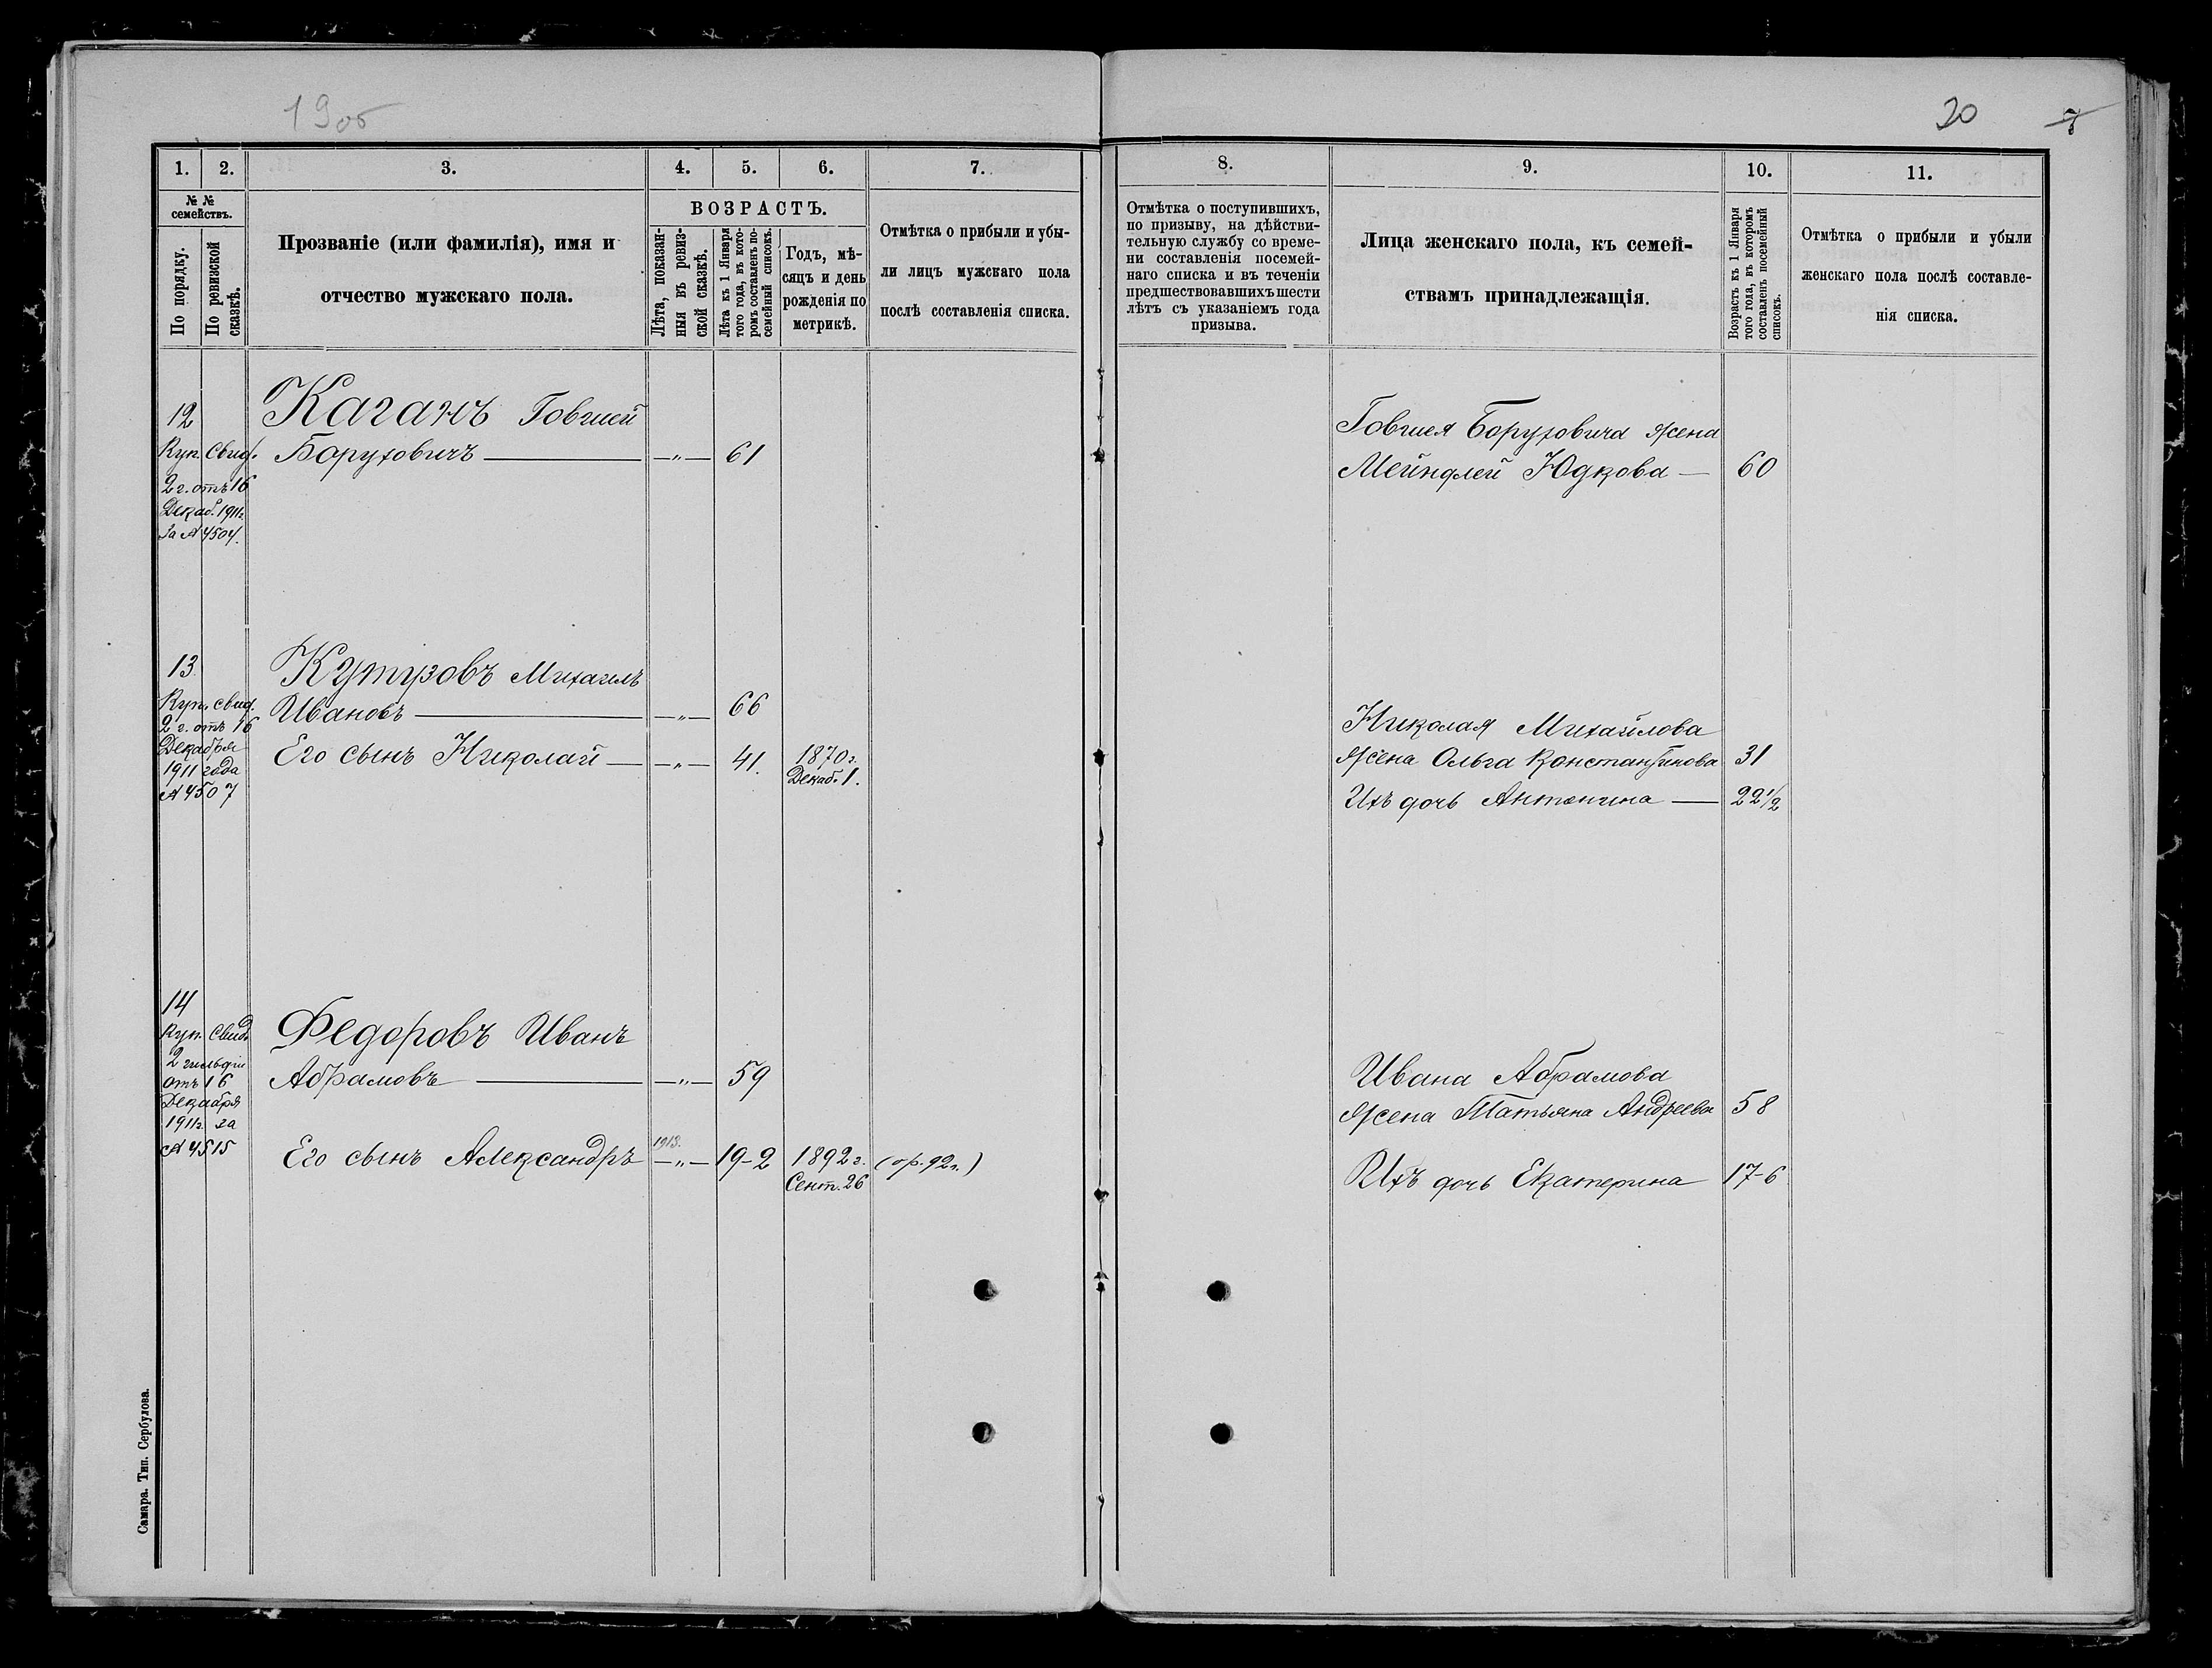 19об
20
7
1.
2.
3.
4.
5.
6.
7.
8.
9.
10.
11.
№ №
семействъ.
По порядку.
По ревизской
сказкѣ.
Прозваніе (или фамилія), имя и
отчество мужскаго пола.
ВОЗРАСТЪ.
Лѣта, показан-
ныя въ ревиз-
ской сказкѣ.
Лѣта къ 1 Января
того года, въ кото-
ромъ составленъ по-
семейный списокъ.
Годъ, мѣ-
сяцъ и день
рожденія по
метрикѣ.
Отмѣтка о прибыли и убы-
ли лицъ мужскаго пола
послѣ составленія списка.
Отмѣтка о поступившихъ,
по призыву, на дѣйстви-
тельную службу со време-
ни составленія посемей-
наго списка и въ теченіи
предшествовавшихъ шести
лѣтъ съ указаніемъ года
призыва.
Лица женскаго пола, къ семей-
ствамъ принадлежащія.
Возрастъ къ 1 Января
того года, въ которомъ
составленъ посемейный
списокъ.
Отмѣтка о прибыли и убыли
женскаго пола послѣ составле-
нія списка.
12
Куп. Свид.
2 г. отъ 16
Декаб. 1911г.
За № 4504.
Каганъ Говшей
Боруховичъ — —„— 61
Говшея Боруховича жена
Мейндлей Юдкова — 60
13
Куп. свид.
2 г. отъ 16
Декабря
1911 года
№ 4507
Кутузовъ Михаилъ
Ивановъ — —„— 66
Его сынъ Николай — —„— 41. 1870г.
Декаб. 1.
Николая Михайлова
жена Ольга Константинова 31
Ихъ дочь Антонина — 22 1/2
14
Куп. Свид.
2 гильдіи
отъ 16
Декабря
1911г. за
№ 4515
Федоровъ Иванъ
Абрамовъ — —„— 59
1913.
Его сынъ Александръ —„— 19-2 1892 г. (пр. 92г.)
Сент. 26
Ивана Абрамова
жена Татьяна Андреева 58
Ихъ дочь Екатерина 17-6
Самара. Тип. Сербулова.